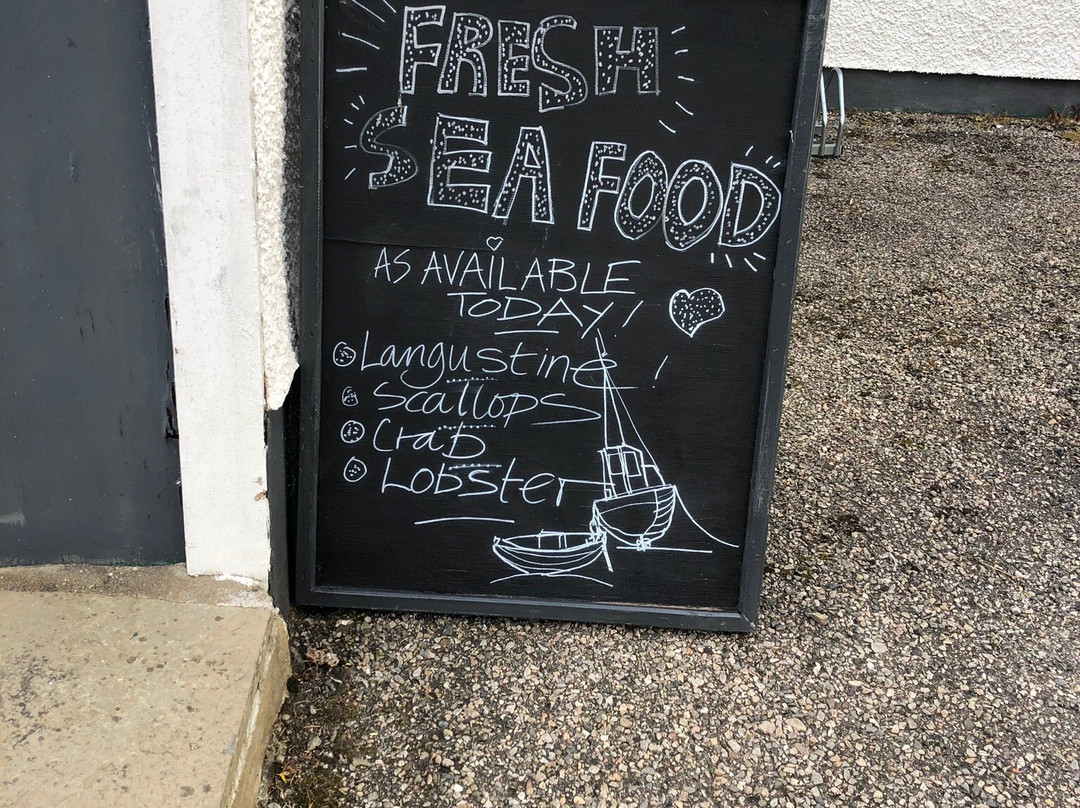 FRESH
SEA FOOD
AS AVAILABLE
TODAY!
Langustine!
Scallops
Crab
Lobster